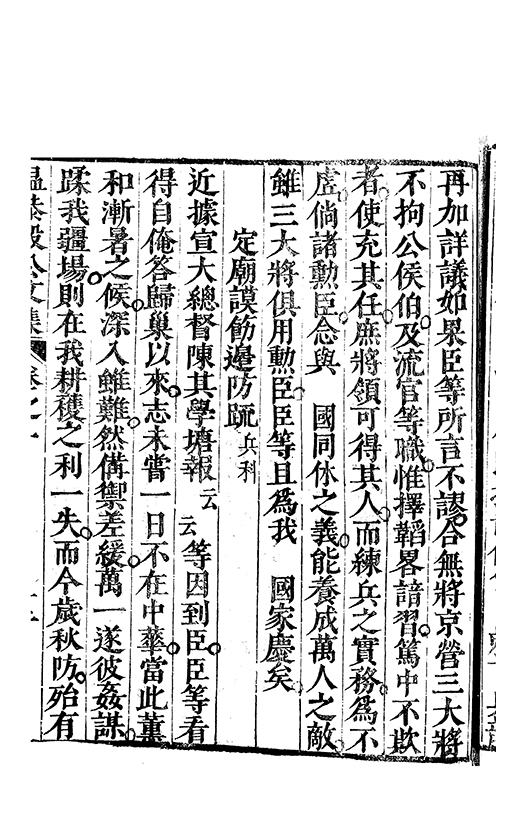 再加詳議如果臣等所言不謬合無將京營三大將
不拘公侯伯及流官等職惟擇韜畧諳習篤中不欺
者使充其任庶將領可得其人而練兵之實務為不
虛倘諸勳臣念與　國同休之義能養成萬人之敵
雖三大將俱用勳臣臣等且為我　國家慶矣
定廟謨飭邊防疏 兵科
近據宣大總督陳其學塘報云云等因到臣臣等看
得自俺答歸巢以來志未嘗一日不在中華當此薰
和漸暑之候深入雖難然俻禦差緩萬一遂彼姦謀
蹂我疆場則在我耕穫之利一失而今歲秋防殆有
温恭毅公文集 卷之一